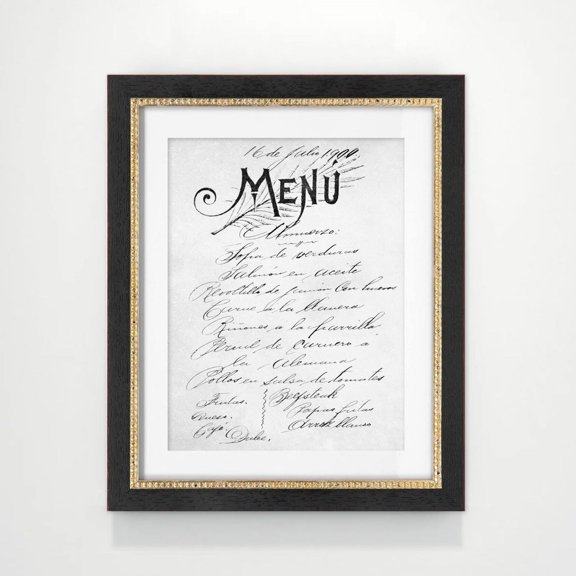 16 de Julio 1900
MENÚ
Almuerzo:
Sopa de verduras
Salmón en aceite
Revoltillo de jamón con huevos
Carne a la llanera
Riñones a la parrilla
de carnero a
la Alemana
Pollos en salsa de tomates
Frutas. Beefsteak
Queso. Papas fritas
Café Dulce. Arroz blanco